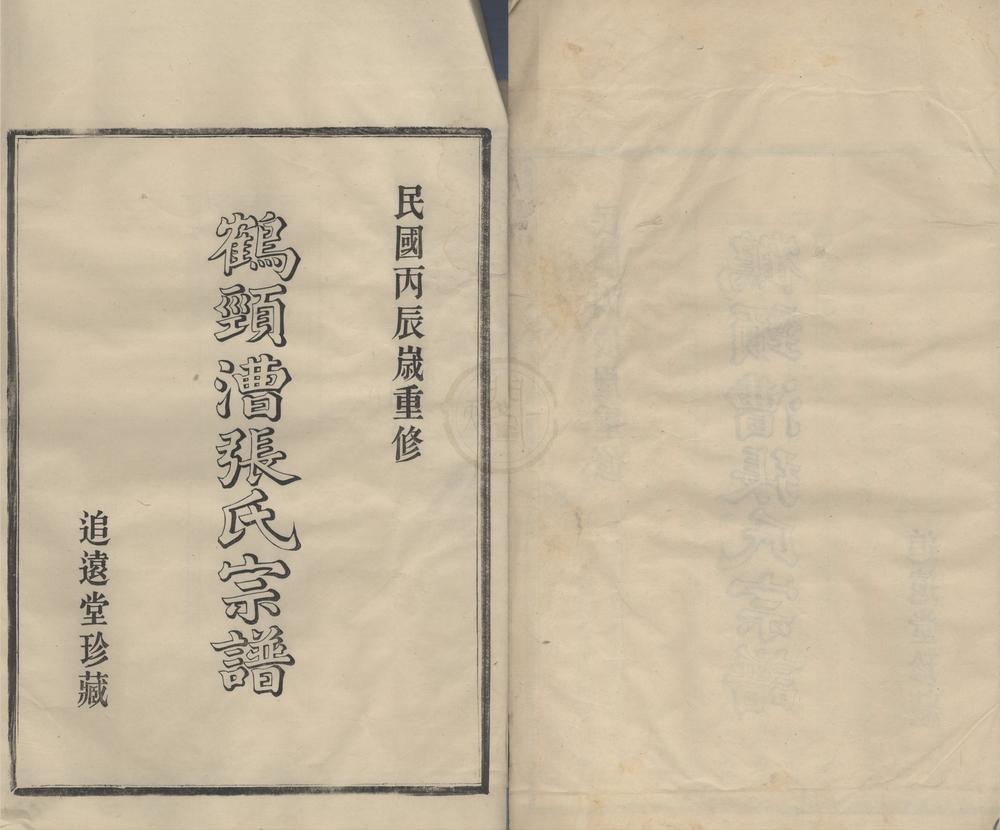 民國丙辰歲重修
鶴頸漕張氏宗譜
追遠堂珍藏